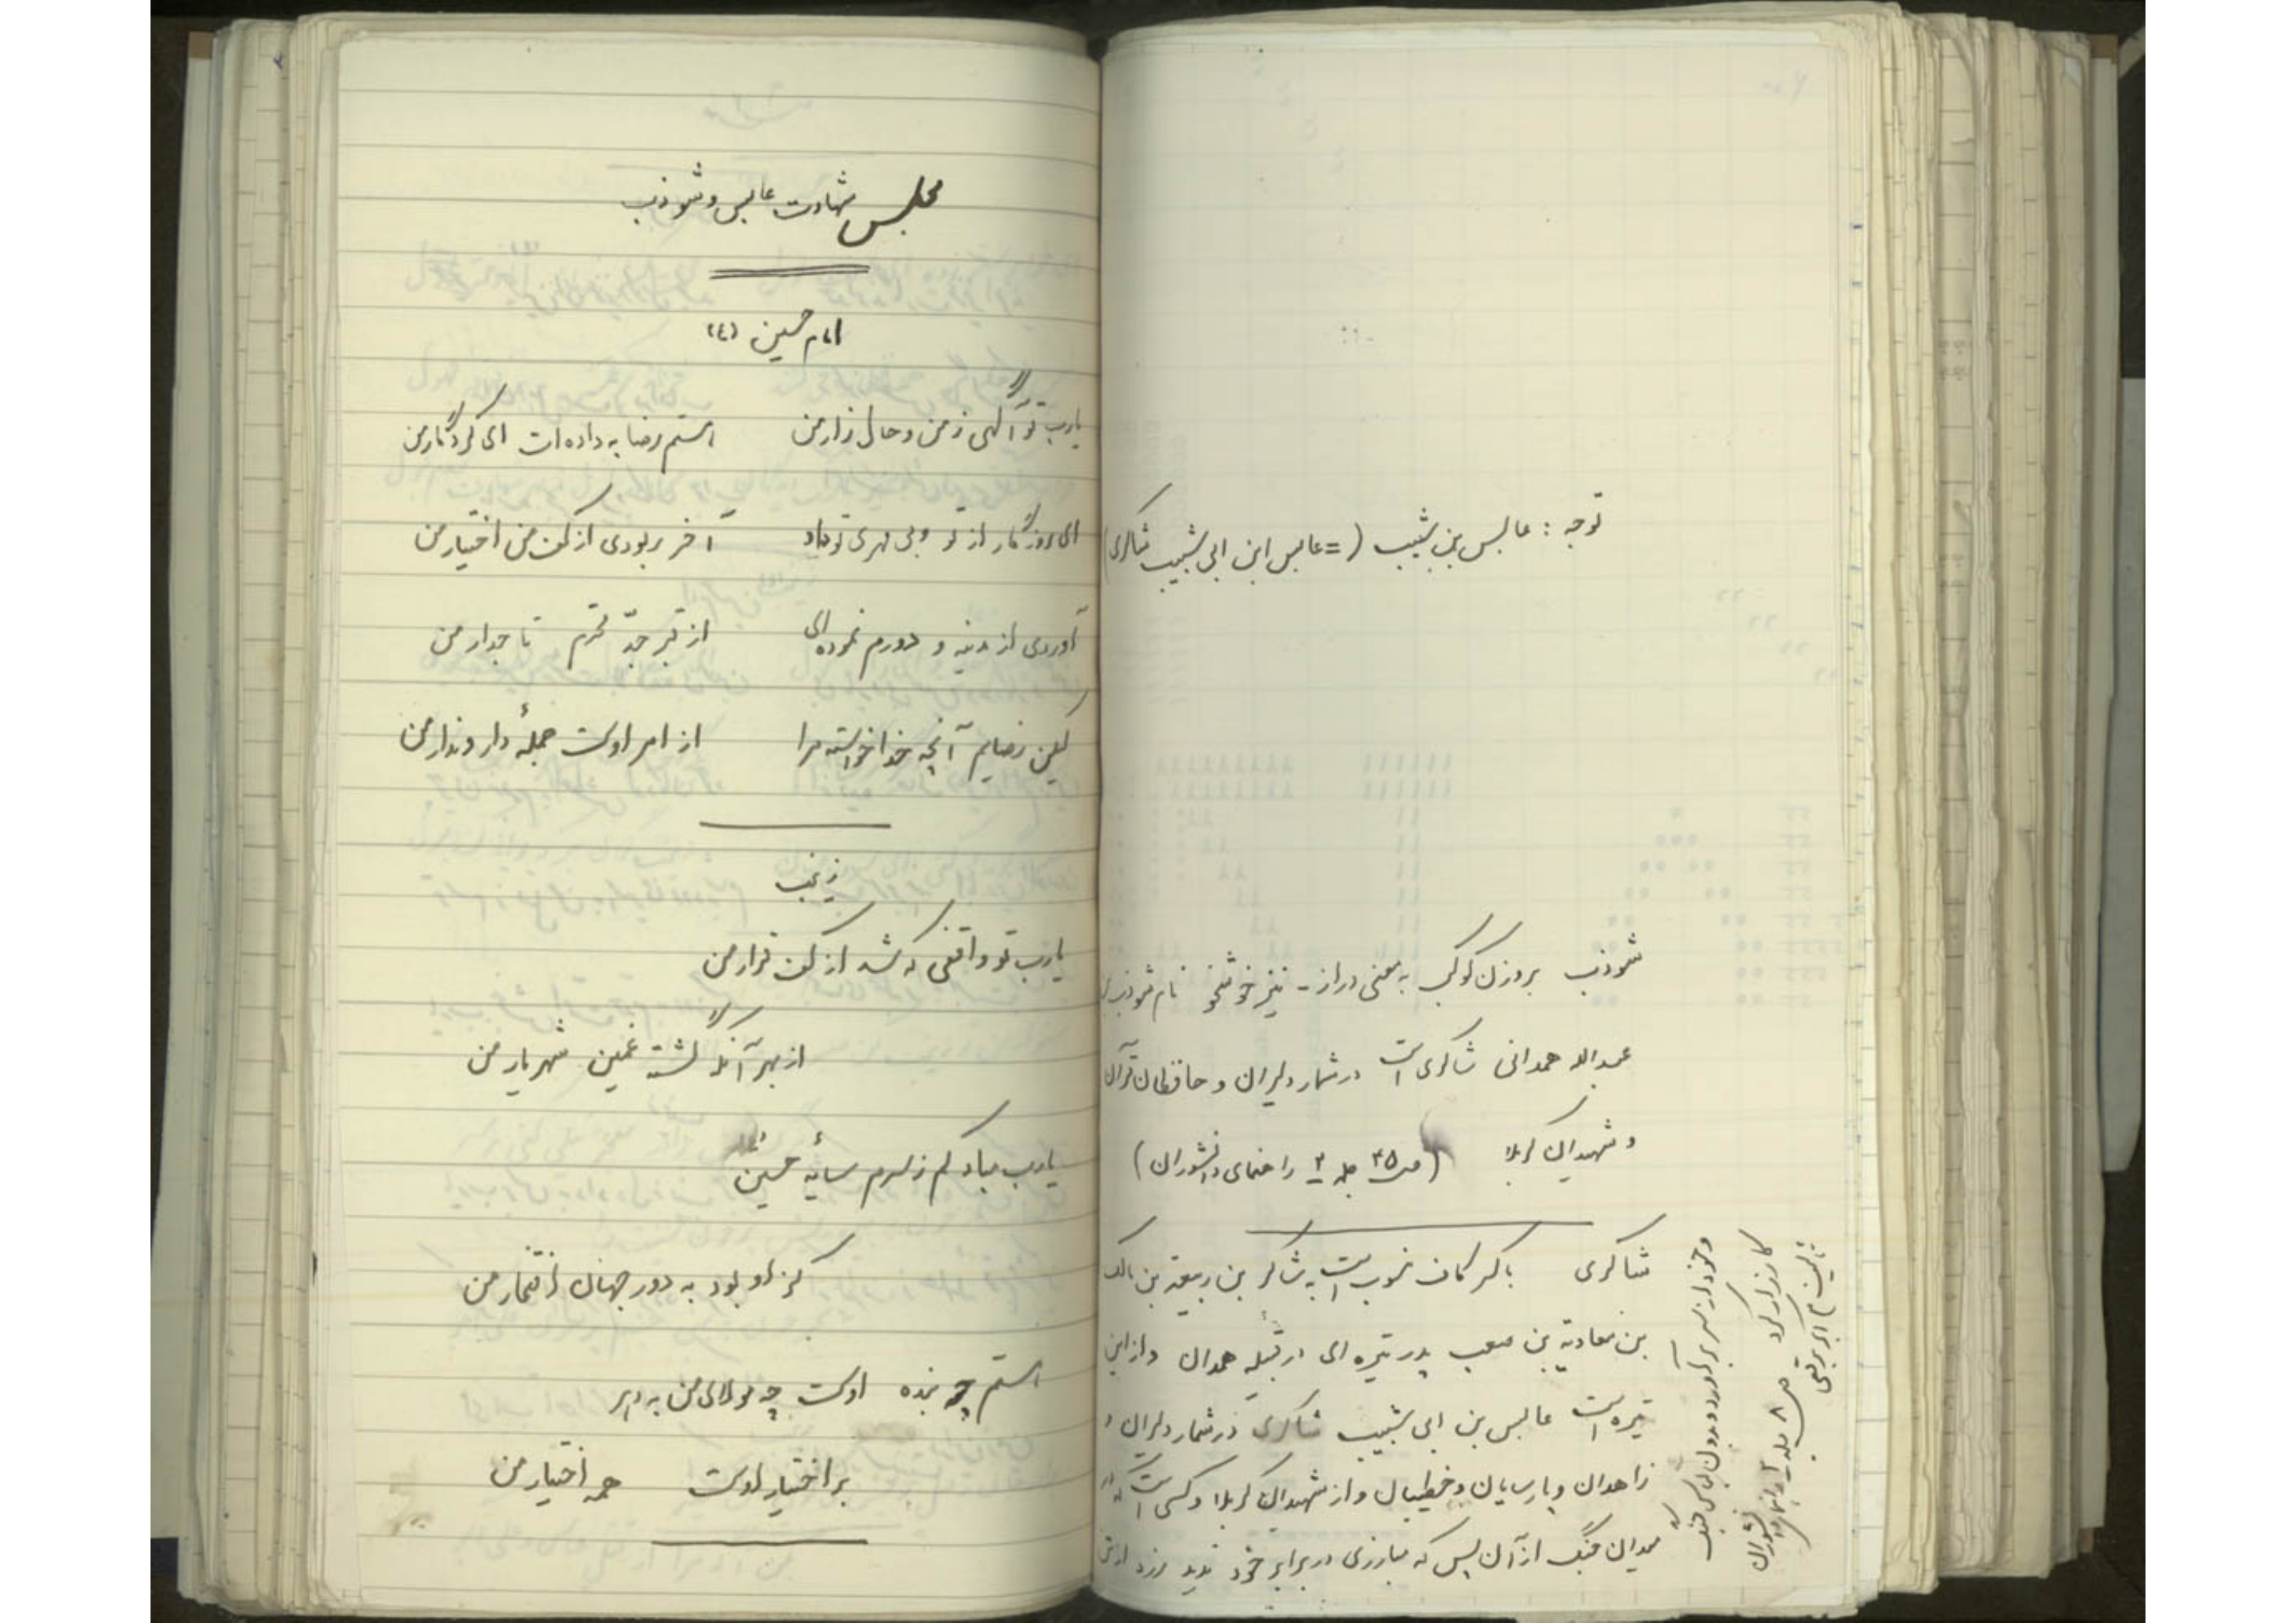 توجه : عابس بن شبیب ( = عابس ابن ابی شبیب شاکری )
شوذب بروزن کوکب به معنی دراز - نیز خوشخو نام شوذب
عبدالله همدانی شاکری است در شمار دلیران و حافظان قرآن
و شهیدان کربلا ( ص ۴۵ جلد ۲ راهنمای دانشوران )
شاکری با کسر کاف منسوب است به شاکر بن ربیعة بن مالک
بن معاویة بن صعب پدر تیره ای در قبیله همدان و از این
تیره است عابس بن ابی شبیب شاکری در شمار دلیران و
زاهدان و پارسایان و خطیبان و از شهیدان کربلا و کسی است که
میدان جنگ از آن پس که مبارزی در برابر خود ندید زره از تن
و خود از سر برآورد و بدون لباس جنگ
کارزار کرد ص ۸ جلد ۲ راهنمای دانشوران
تألیف ع اکبر برقعی
مجلس شهادت عابس و شوذب
امام حسین (ع)
یارب تو آگهی ز من و حال زار من
هستم رضا به داده ات ای کردگار من
ای روزگار از تو و بی مهری تو داد
آخر ربودی از کف من اختیار من
آوردی از مدینه و دورم نموده ای
از قبر جدّ محترم تاجدار من
لیکن رضایم آنچه خدا خواسته مرا
از امر اوست جملهٔ دار و ندار من
زینب
یارب تو واقفی که شد از کف قرار من
از بهر آنکه گشته غمین شهریار من
یارب مباد کم ز سرم سایهٔ حسین
کز او بود به دور جهان افتخار من
هستم چو بنده اوست چو مولای من به دهر
بر اختیار اوست همه اختیار من